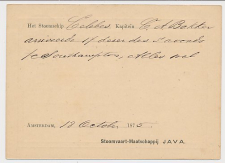 Het Stoomschip Celebes Kapitein C. A. Bakker
arriveerde of dezer des 's avonds
te Southampton, Alles wel
Amsterdam, 18 October 1875
Stoomvaart-Maatschappij JAVA.